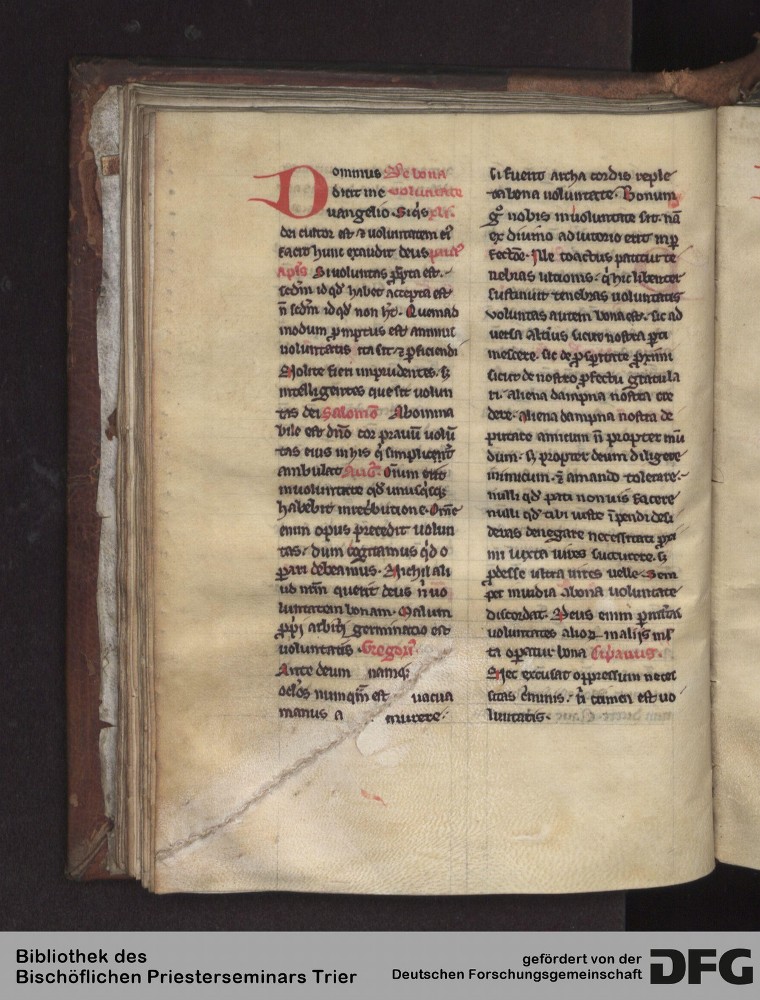 Dominus De bona
dicit in e voluntate
uangelio. Siq̇s xli.
dei cultor est ⁊ voluntatem ei᷒
facit hunc exaudit deus
apl̄s Si voluntas p̄mpta est.
scdm id qd̓ habet accepta est
n̄ scdm id qd̓ non hꝫ. Quemad
modum promptus est animus
voluntatis ita sit ⁊ ꝑficiendi
Nolite fieri imprudentes. sꝫ
intelligentes que sit volun
tas dei Salomō Abomina
bile est dn̄o cor prauū volū
tas eius in his q̇ simpliciter̄
ambulāt Aug᷒. Om̄ium erit
in voluntate qd̓ unusq̇sqꝫ
habebit in retributione. Om̄e
enim opus precedit uolun
tas. dum cogitamus qd̓ o
ꝑari debeamus. Nichil ali
ud nr̄m querit deus n̄ uo
luntatem bonam. Malum
ꝓpͥj arbitͥj germinatio est
voluntatis. Gregoꝝ᷒.
Ante deum namqꝫ
oclōs numqͣm est uacua
manus a munere.
si fuerit archa cordis reple
ta bona uoluntate. Bonum
gͦ nobis in uoluntate sit. nā
ex diuino adiutorio erit in ꝑ
fectōe. Ille coactus patitur te
nebras ultionis. q̇ hic libenter
sustinuit tenebras uoluntatis
Voluntas autem bona est. sic ad
uersa alt̓ius sicut nostra ꝑti
mescere. sic de ꝓsꝑitate proximi
sicut de nostro ꝓfectu gratula
ri. aliena dampna nostra cre
dere. aliena dampna nostra de
putare amicum n̄ propter mū
dum. sꝫ propter deum diligere
inimicum. ⁊ amando tolerare.
nulli qd̓ pati non uis facere
nulli qd̓ tibi iuste īpendi desi
deras denegare necessitati ꝓxi
mi iuxta uires succurere. sꝫ
ꝓdesse ultra uires uelle. Sem
per inuidia a bona uoluntate
discordat. Deus enim
voluntates alioꝝ in alijs
ta operatur bona Cip̄anus.
Nec excusat oppressum necess
sitas c̓minis. ubi crimen est uo
luntatis.
Bibliothek des
Bischöflichen Priesterseminars Trier
gefördert von der
Deutschen Forschungsgemeinschaft
DFG